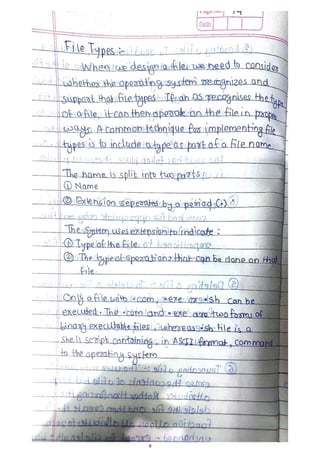 Page No. 14
Date
File Types :-
When we design a file, we need to consider
whether the operating system recognizes and
support that file types If an OS recognises the type
of a file, it can then operate on the file in proper
ways. A common technique for implementing file
types is to include a type as part of a file name
The name is split into two parts
① Name
② Extension seperated by a period (.)
The system uses extension to indicate :
① Type of the file
② The type of operations that can be done on that
file
Only a file with .com, .exe or .sh can be
executed. The .com and .exe are two forms of
binary executable files, whereas .sh file is a
shell script containing, in ASCII format, command
to the operating system
9